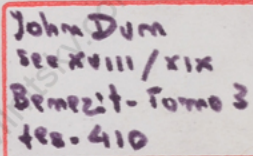 John Dum
see XVIII / XIX
Bemezit - Tomo 3
fes. 410